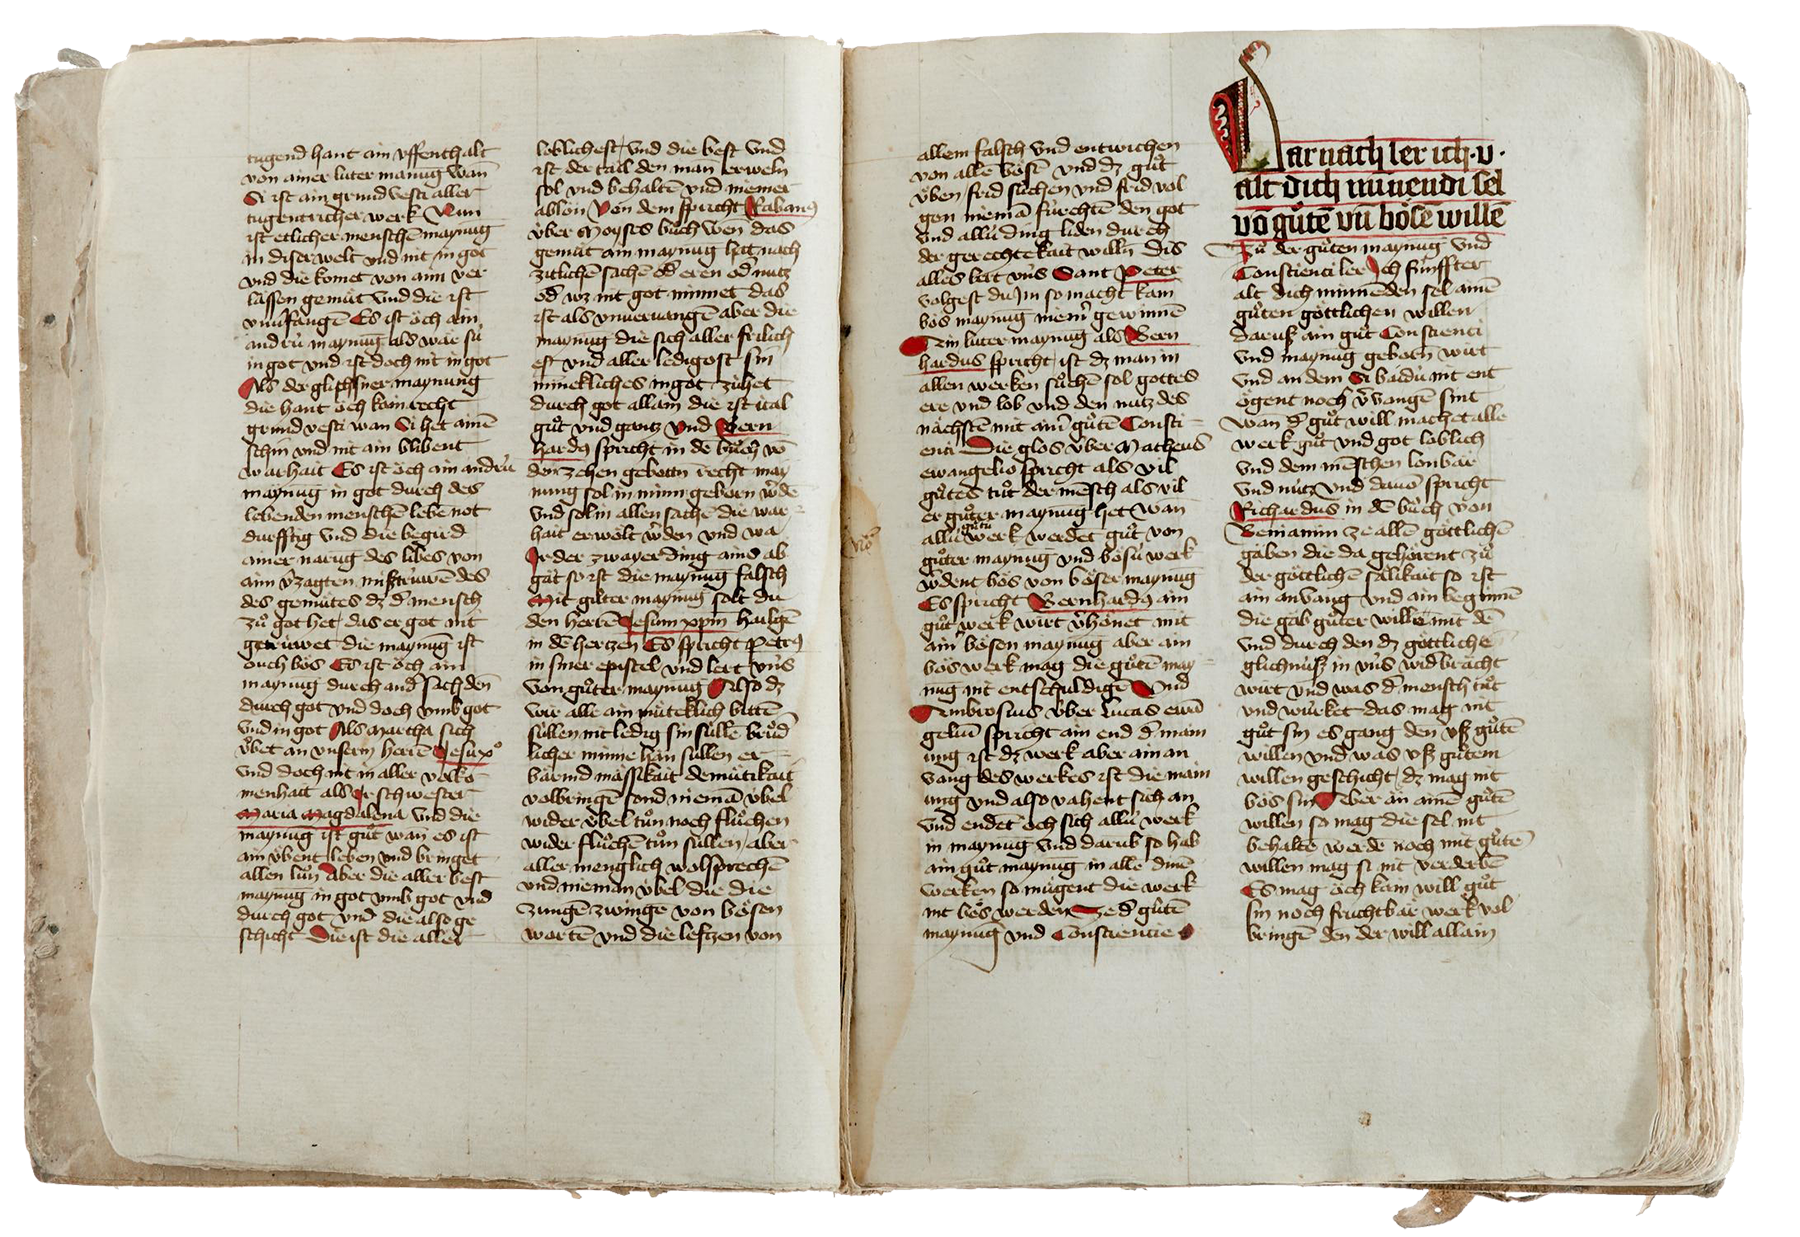 tugend hant ain vffenthalt
von ainer luter manūg wan
Si ist ain grund vesti aller
tugentricher werk Nun
ist etlicher menschē maynūg
in diser welt vnd nit in got
vnd die komet von aim ver
lassen gemüt vnd die ist
Es ist och ain
andrü maynūg als wär sü
in got vnd ist doch nit in got
Als der glichsner maynung
die hant och kain recht
grund vesti wan Si het ainē
schin vnd nit ain blibent
warhait Es ist och ain andrü
maynūg in got durch des
lebenden menschē lebe not
durfftig vnd die begird
ainer narug des libes von
aim v̄zagten mißtruwē des
des gemütes dz d̄ mensch
zü got het das er got nit
getruwet die maynūg ist
ouch bös Es ist och ain
maynūg durch and̄ sach den
durch got vnd doch vmb got
vnd in got Als martha sich
v̊bet an vnserm herrē Jesu xo
vnd doch nit in aller volko
menhait als ir schwester
Maria Magdalena vnd die
maynūg ist gůt wan es ist
ain v̊bent leben vnd bringet
allen lün Aber die aller best
maynūg in got vmb got vnd
durch got vnd die also ge
schicht Die ist die aller
loblichest vnd die best vnd
ist der tail den man erweln
sol vnd behaltē vnd niemer
ablön Von dem spricht Rabanꝰ
v̊ber Moyses bůch wen das
gemüt ain maynūg hat nach
zitlichē sachē od̄ eren od̄ nutz
od̄ wz nit got minnet das
ist als vnuervangē aber die
maynūg die sich aller frilich
est vnd aller ledigost sin
minekliches in got zühet
durch got allain die ist ital
gůt vnd gantz vnd Bern
hardꝰ spricht in dē bůch vō
den zehen gebottn recht may
nung sol in minn geborn w̄dē
vnd sol in allen sachē die war
hait erwölt w̄den vnd wa
Ir der zwayer ding ains ab
gät so ist die maynūg falsch
Mit gůter maynūg solt du
den herrē Jesum xpm hailgē
in dē hertzen Es spricht Petrꝰ
in siner epistel vnd lert vns
von gůter maynūg Also dz
wir alle ain müteklich bittē
süllen mitledig sin süllē brůd
licher minne hän süllen er
bärmd mässikait demütikait
volbringē sond niemā v̊bel
wider v̊bel tůn noch flůchen
wider flůchē tůn süllen aber
aller menglich wolsprechē
vnd nieman v̊bel die die
zungē zwinge von bösen
wortē vnd die leftzen von
allem falsch vnd entwichen
von allē bösē vnd dz gůt
v̊ben frid sůchen vnd frid vol
gen niemā fürchtē den got
vnd allü ding liden durch
der gerechtekait willn Dis
alles lert vns Sant Peter
volgest du Im so macht kain
bös maynūg niem̄ gewinnē
Ain luter maynūg als Bern
hardus spricht ist dz man in
allen werken sůchē sol gottes
ere vnd lob vnd den nutz des
nächstē mit aim gůtē Consti
enci Die glos v̊ber Matheus
ewangelio spricht als vil
gůtes tůt der mēsch als vil
er gůter maynūg het wan
gůtü
allü werk werdet gůt von
gůter maynūg vnd bösü werk
w̄dent bös von böser maynūg
Es spricht Bernhardꝰ ain
gůt werk wirt v̄hönet mit
ain̄ bösen maynūg aber ain
bös werk mag die gůtē may
nūg nit entschuldigē Vnd
Ambrosius v̊ber Lucas ewā
geliū spricht ain end d̄ main
ung ist dz werk aber ain an
vang des werkes ist die main
ung vnd also vahent sich an
vnd endet och sich allü werk
in maynūg vnd darub so hab
ain gůt maynūg in allē dinē
werken so mügent die werk
nit bös werden Ze d̄ gůtē
maynūg vnd Consciencie
Darnach ler ich ·v·
alt dich minnendi sel
vō gůtē vn̄ bösē willē
Zů der gůten maynūg vnd
Conscienci ler Ich fünffter
alt dich minnēden sel ainē
gůten göttlichen willen
daruß ain gůt Conscienci
vnd maynūg geborn wirt
vnd an dem Si baidü nit ent
ögent noch v̄vangē sint
Wan d̄ gůt will machet alle
werk gůt vnd got loblich
vnd dem mēschen lonbär
vnd nütz vnd dauō spricht
Richardus in dē bůch von
Beniamin ze allē göttlichē
gäben die da gehörent zů
der göttlichē sälikait so ist
ain anvang vnd ain beginnē
die gäb gůter willē mit dē
vnd durch den dz göttliche
glichnüß in vns widbrächt
wirt vnd was d̄ mensch tůt
vnd würket das mag nit
gůt sin es gang den vß gůtē
willen vnd was vß gůtem
willen geschicht dz mag nit
bös sin Aber än ainē gůtē
willen so mag die sel nit
behaltē werdē noch mit gůtē
willen mag si nit verderbē
Es mag och kain will gůt
sin noch fruchtbär werk vol
bringē den der will allain